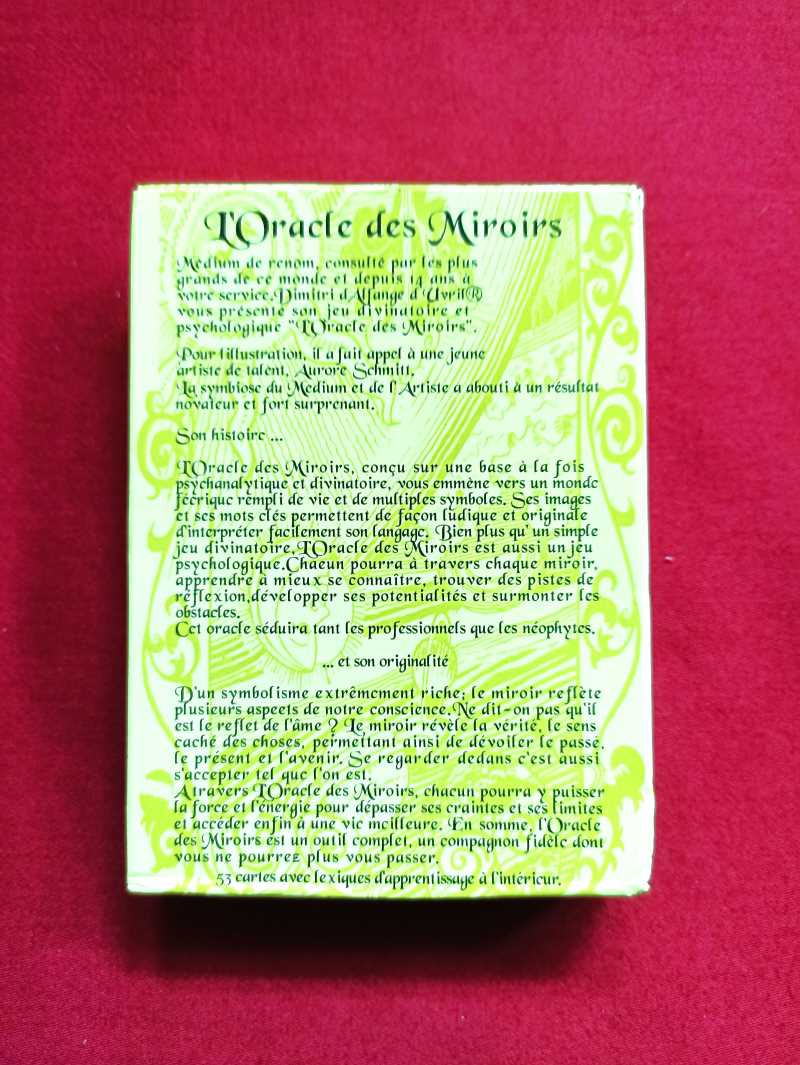 L'Oracle des Miroirs
Médium de renom, consulté par les plus
grands de ce monde et depuis 14 ans à
votre service.Dimitri d'Alfange d'Uvril®
vous présente son jeu divinatoire et
psychologique "L'Oracle des Miroirs".
Pour l'illustration, il a fait appel à une jeune
artiste de talent, Aurore Schmitt.
La symbiose du Medium et de l'Artiste a abouti à un résultat
novateur et fort surprenant.
Son histoire ...
L'Oracle des Miroirs, conçu sur une base à la fois
psychanalytique et divinatoire, vous emmène vers un monde
féérique rempli de vie et de multiples symboles. Ses images
et ses mots clés permettent de façon ludique et originale
d'interpréter facilement son langage. Bien plus qu'un simple
jeu divinatoire,L'Oracle des Miroirs est aussi un jeu
psychologique.Chacun pourra à travers chaque miroir,
apprendre à mieux se connaître, trouver des pistes de
réflexion,développer ses potentialités et surmonter les
obstacles.
Cet oracle séduira tant les professionnels que les néophytes.
... et son originalité
D'un symbolisme extrêmement riche; le miroir reflète
plusieurs aspects de notre conscience.Ne dit-on pas qu'il
est le reflet de l'âme ? Le miroir révèle la vérité, le sens
caché des choses, permettant ainsi de dévoiler le passé,
le présent et l'avenir. Se regarder dedans c'est aussi
s'accepter tel que l'on est.
Atravers L'Oracle des Miroirs, chacun pourra y puisser
la force et l'énergie pour dépasser ses craintes et ses limites
et accéder enfin à une vie meilleure. En somme, l'Oracle
des Miroirs est un outil complet, un compagnon fidèle dont
vous ne pourrez plus vous passer.
53 cartes avec lexiques d'apprentissage à l'intérieur.